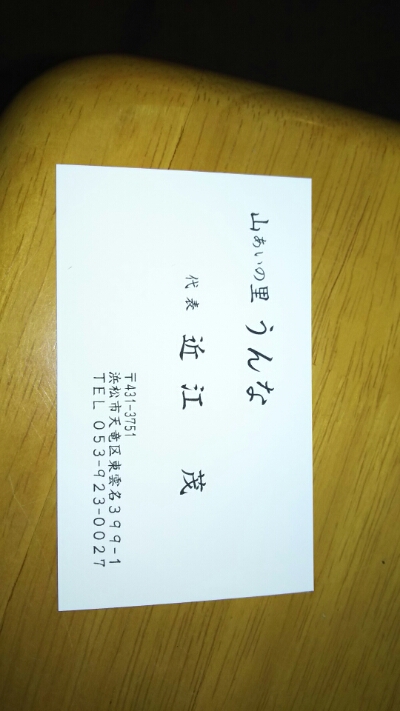 山あいの里 うんな
代表 近江 茂
〒431-3751
浜松市天竜区東雲名399-1
TEL 053-923-0027